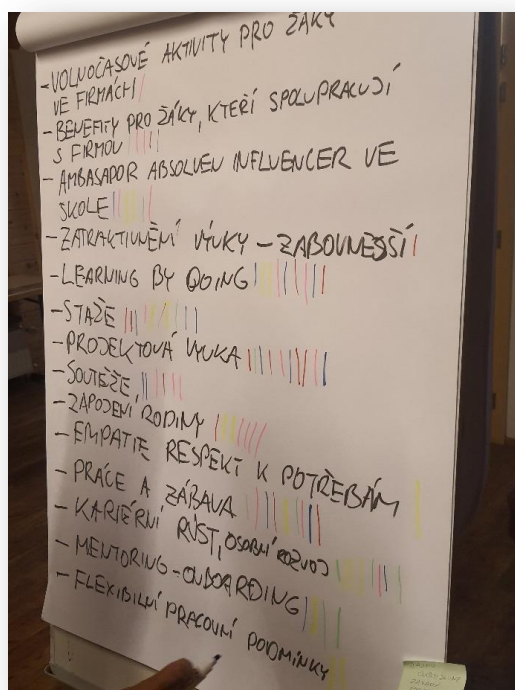 - VOLNOČASOVÉ AKTIVITY PRO ŽÁKY
VE FIRMÁCH
- BENEFITY PRO ŽÁKY, KTEŘÍ SPOLUPRACUJÍ
S FIRMOU
- AMBASADOR ABSOLVEN INFLUENCER VE
SKOLE
- ZATRAKTIVNĚNÍ VÝUKY - ZÁBOVNĚJŠÍ
- LEARNING BY DOING
- STAŽE
- PROJEKTOVÁ VÝUKA
- SOUTĚŽE
- ZAPOJENÍ RODINY
- EMPATIE RESPEKT K POTŘEBÁM
- PRÁCE A ZÁBAVA
- KARIÉRNÍ RŮST, OSOBNÍ ROZVOJ
- MENTORING - ONBOARDING
- FLEXIBILNÍ PRACOVNÍ PODMÍNKY